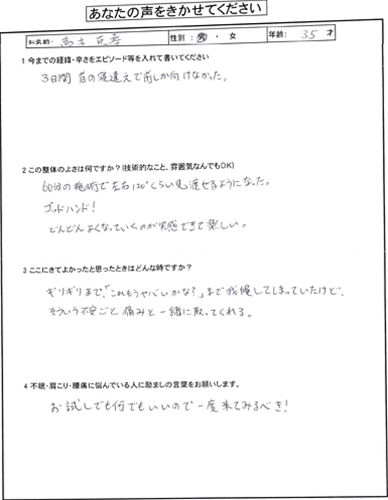 あなたの声をきかせてください
お名前: 性別: 男・女 年齢: 35 才
1 今までの経緯・辛さをエピソード等を入れて書いてください
3日間 首の寝違えで前しか向けなかった。
2 この整体のよさは何ですか?(技術的なこと、雰囲気なんでもOK)
60分の施術で左右120°くらい見渡せるようになった。
ゴッドハンド!
どんどんよくなっていくのが実感できて楽しい。
3 ここにきてよかったと思ったときはどんな時ですか?
ギリギリまで、「これもうヤバいかな?」まで我慢してしまっていたけど、
そういう不安ごと痛みと一緒に取ってくれる。
4 不眠・肩こり・腰痛に悩んでいる人に励ましの言葉をお願いします。
お試しでも何でもいいので一度来てみるべき!